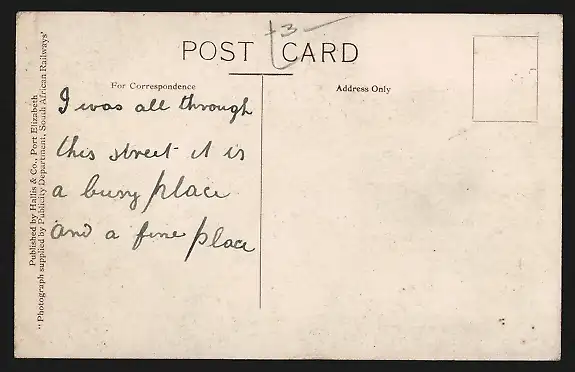 3
POST CARD
For Correspondence
Address Only
I was all through
this street it is
a busy place
and a fine place
Published by Hallis & Co., Port Elizabeth
"Photograph supplied by Publicity Department, South African Railways"